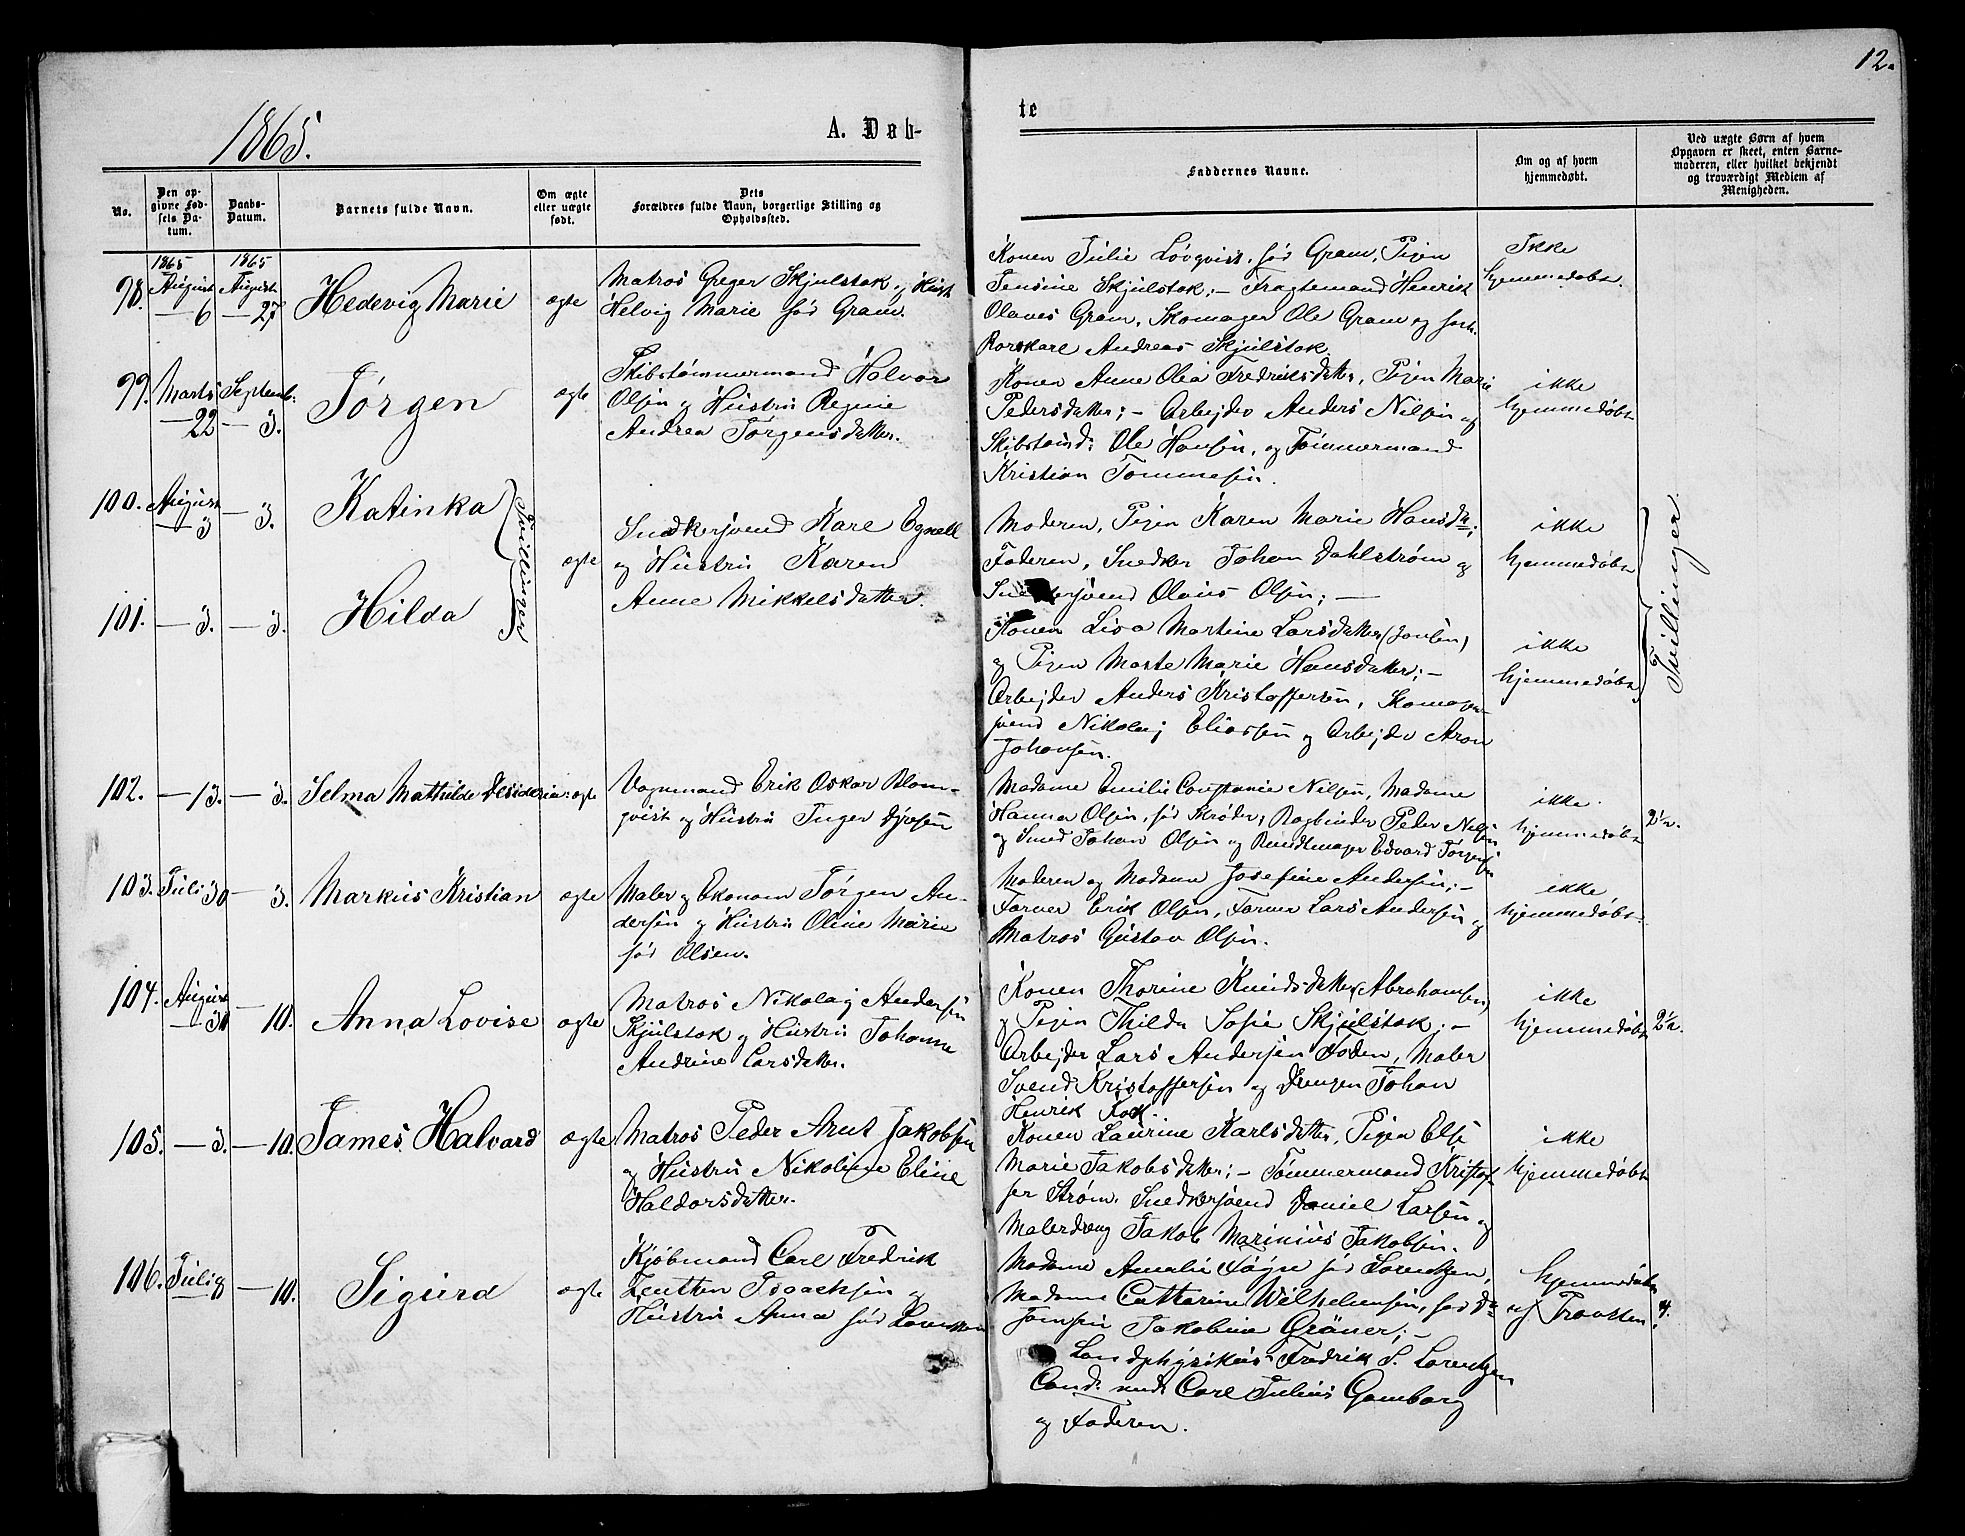 12.
1865.
A. Døb-
te
No.
Den op-
givne Fød-
sels Da-
tum.
Daabs-
Datum.
Barnets fulde Navn.
Om ægte
eller uægte
født.
Dets
Forældres fulde Navn, borgerlige Stilling og
Opholdssted.
Faddernes Navne.
Om og af hvem
hjemmedøbt.
Ved uægte Børn af hvem
Opgaven er skeet, enten Barne-
moderen, eller hvilket bekjendt
og troværdigt Medlem af
Menigheden.
98.
1865
August
— 6
1865
August
— 27
Hedevig Marie
ægte
Matros Greger Skjulstok og Hust
Helvig Marie fød Gram.
Konen Julie Lövqvist, fød Gram, Pigen
Jensine Skjulstok; — Fragtemand Henrik
Olaves Gram, Skomager Ole Gram og
Rorskarl Andreas Skjulstok.
Ikke
hjemmedøbt.
99.
Marts
— 22
Septemb.
— 3.
Jørgen
ægte
Skibstømmermand Halvor
Olsen og Hustru Regine
Andrea Jørgensdatter.
Konen Anne Olea Fredriksdatter, Pigen Marie
Pedersdatter; — Arbejder Anders Nilsen og
Ole Hansen, og Tømmermand
Kristian Tommesen.
ikke
hjemmedøbt
100.
August
— 3
— 3.
Katinka
Tvillinger
ægte
Snedkersvend Karl Egnell
og Hustru Karen
Anne Mikkelsdatter.
Moderen, Pigen Karen Marie Hansdtr;
Faderen, Snedker Johan Dahlstrøm og
Snedkersvend Olaus Olsen; —
ikke
hjemmedøbt
Tvillinger.
101.
— 3.
— 3.
Hilda
Konen Lisa Martine Larsdatter
og Pigen Marte Marie Hansdatter; —
Arbejder Anders Kristoffersen, Skomager-
svend Nikolaj Eliassen og Arbejder Aron
Johansen.
ikke
hjemmedøbt
102.
— 13.
— 3.
Selma Mathilde Desideria
ægte
Vognmand Erik Oskar Blom-
qvist og Hustru Inger
Madame Emilie Constance Nilsen, Madame
Hanna Olsen, fød Skrøder, Bogbinder Peder Nilsen
og Smed Johan Olsen og Rundtmager Edvard Jørgensen
ikke
hjemmedøbt
2½.
103.
Juli 30
— 3.
Markus Kristian
ægte
Maler og Ekonom Jørgen An-
dersen og Hustru Oline Marie
fød Olsen.
Moderen og Madame Josefine Andersen; —
Farver Erik Olsen, Farver Lars Andersen og
Matros Gustav Olsen.
ikke
hjemmedøbt.
104.
August
— 30
— 10.
Anna Lovise
ægte
Matros Nikolaj Andersen
Skjulstok og Hustru Johanne
Andrine Larsdatter.
Konen Thorine Knudsdatter (Abrahamsen)
og Pigen Thilda Sofie Skjulstok; —
Arbejder Lars Andersen Foden, Maler
Svend Kristoffersen og Drengen Johan
Henrik Fok.
ikke
hjemmedøbt
2½.
105.
— 3.
— 10.
James Halvard
ægte
Matros Peder Arnt Jakobsen
og Hustru Nikoline Eline
Haldorsdatter.
Konen Laurine Karlsdatter, Pigen Else
Marie Jakobsdatter; — Tømmermand Kristof-
fer Strøm, Snedkersvend Daniel Larsen og
Malerdreng Jakob Marinius Jakobsen.
ikke
hjemmedøbt
106.
Juli 8
— 10.
Sigurd
ægte
Kjøbmand Carl Fredrik
Isaachsen og
Hustru Anna fød Lorentzen
Madame Amalie Føyn fød Lorentzen,
Madame Cathrine Wilhelmsen, fød Do
Jomfru Jakobine Gräner; —
Landphysikus Fredrik S. Lorentzen
Cand. med. Carl Julius Gamborg
og Faderen.
hjemmedøbt
af
4.